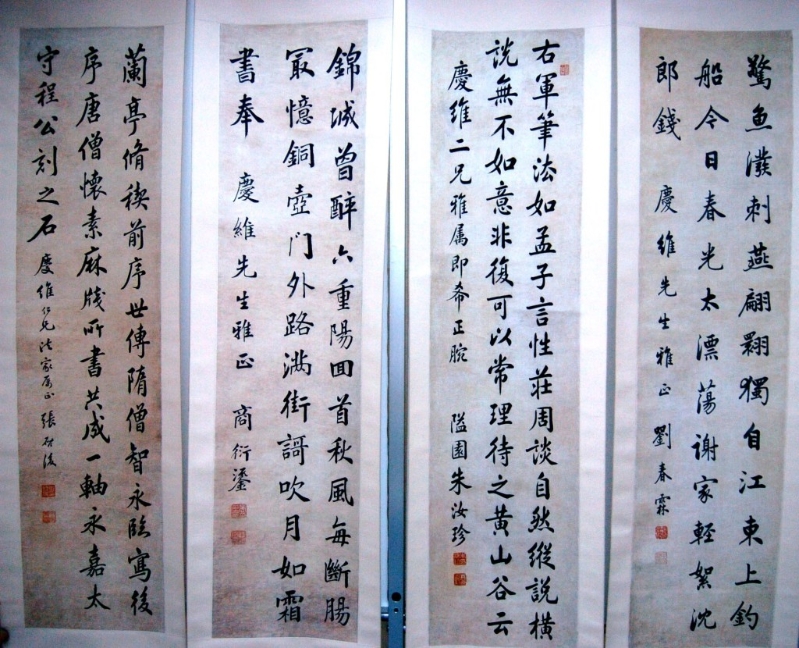 驚魚潑刺燕翩翾獨自江東上釣
船今日春光太漂蕩謝家輕絮沈
郎錢 慶維先生雅正 劉春霖
右軍筆法如孟子言性莊周談自然縱說橫
說無不如意非復可以常理待之黃山谷云
慶維二兄雅属即希正腕 隘園朱汝珍
錦城曾醉六重陽回首秋風每斷腸
冣憶銅壺门外路滿街謌吹月如霜
書奉 慶維先生雅正 商衍鎏
蘭亭脩稧前序世傳隋僧智永臨寫後
序唐僧懷素麻牋所書共成一軸永嘉太
守程公刻之石 慶維仁兄法家属正 張啟後